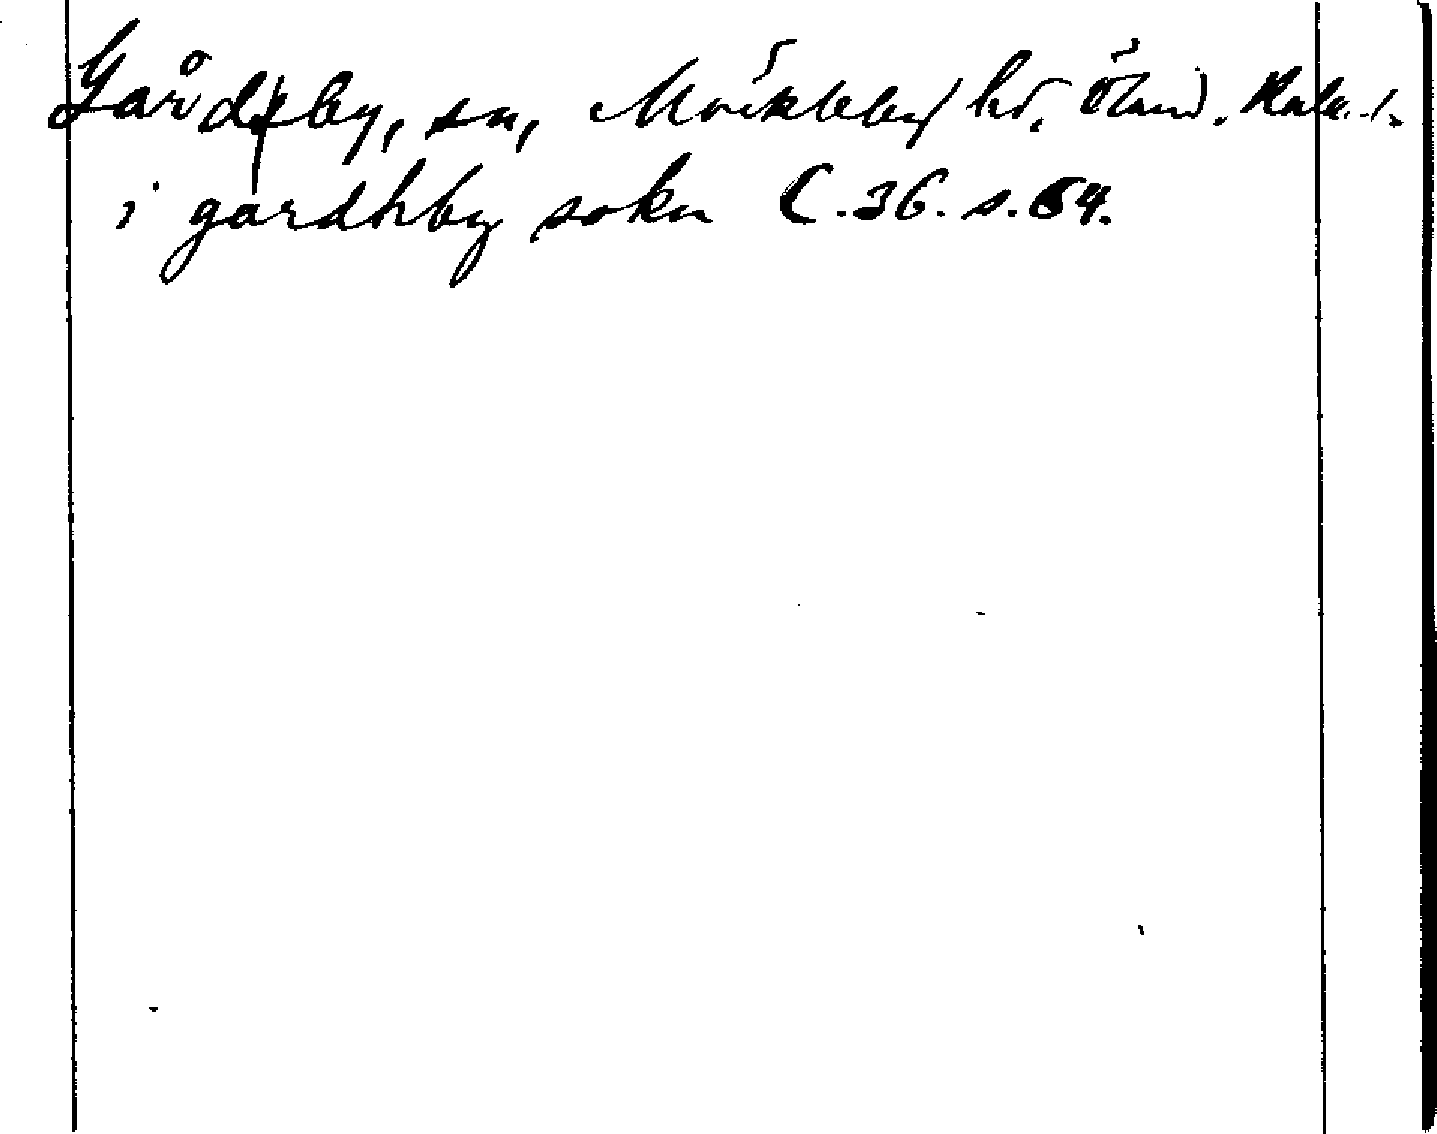 Gårdsby, sn, Möckleby hd, Öland. Kalm. l.
i gardhby sokn C.36. s.54.